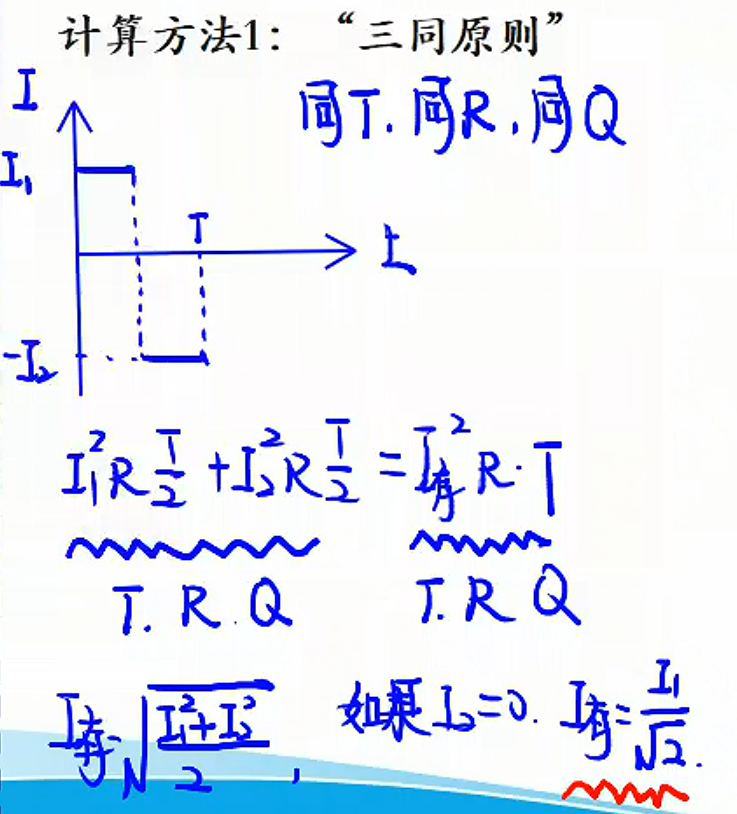 计算方法1：“三同原则”
I
同T.同R.同Q
I₁
T
t
-I₂
I₁²R T/2 + I₂²R T/2 = I有²R·T
T.R.Q T.R Q
I有=√((I₁²+I₂²)/2), 如果I₂=0. I有=I₁/√2.